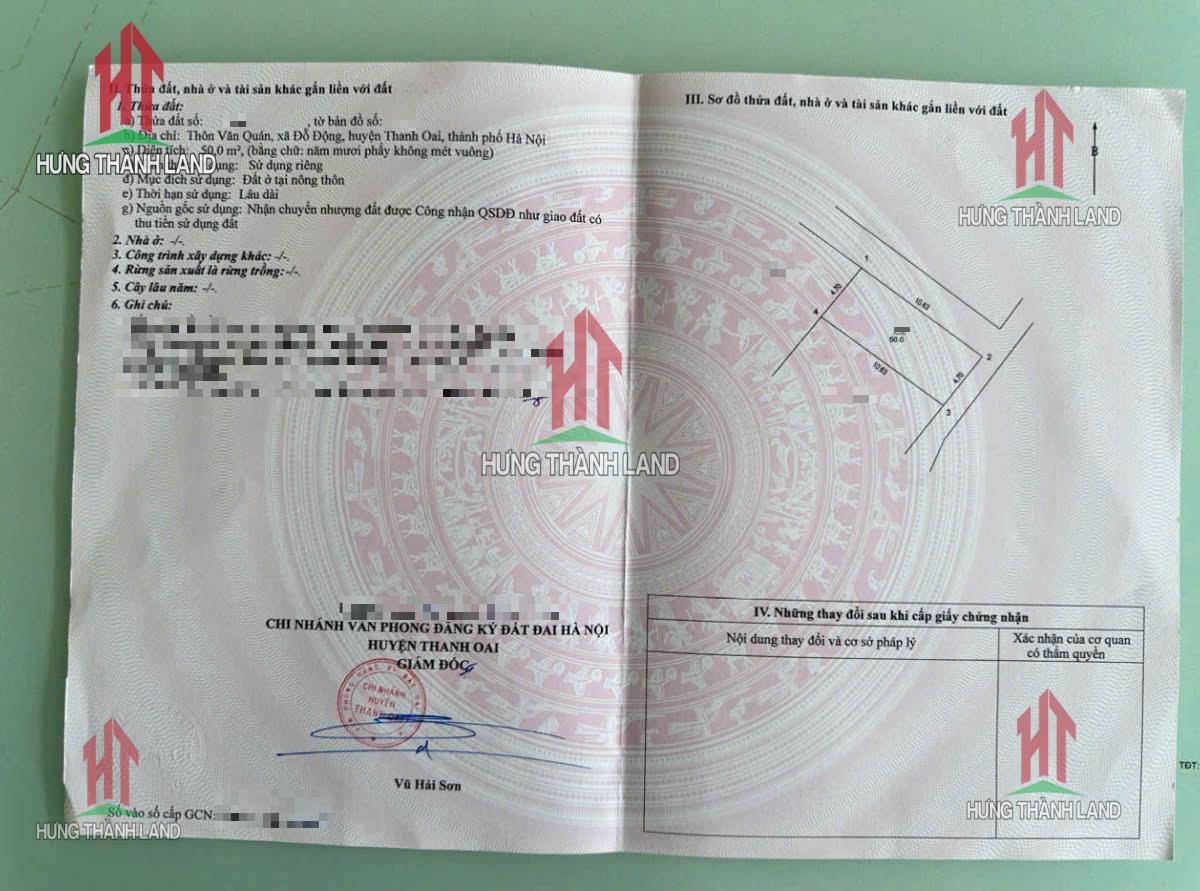 II. Thửa đất, nhà ở và tài sản khác gắn liền với đất
1. Thửa đất:
a) Thửa đất số: , tờ bản đồ số:
b) Địa chỉ: Thôn Văn Quán, xã Đỗ Động, huyện Thanh Oai, thành phố Hà Nội
c) Diện tích: 50,0 m², (bằng chữ: năm mươi phẩy không mét vuông)
dụng: Sử dụng riêng
đ) Mục đích sử dụng: Đất ở tại nông thôn
e) Thời hạn sử dụng: Lâu dài
g) Nguồn gốc sử dụng: Nhận chuyển nhượng đất được Công nhận QSDĐ như giao đất có
thu tiền sử dụng đất
2. Nhà ở: -/-.
3. Công trình xây dựng khác: -/-.
4. Rừng sản xuất là rừng trồng: -/-.
5. Cây lâu năm: -/-.
6. Ghi chú:
CHI NHÁNH VĂN PHÒNG ĐĂNG KÝ ĐẤT ĐAI HÀ NỘI
HUYỆN THANH OAI
GIÁM ĐỐC
CHI NHÁNH
HUYỆN
THANH OAI
Vũ Hải Sơn
Số vào sổ cấp GCN:
III. Sơ đồ thửa đất, nhà ở và tài sản khác gắn liền với đất
B
1
4.70
10.63
4
50.0
2
10.63
4.70
3
IV. Những thay đổi sau khi cấp giấy chứng nhận
Nội dung thay đổi và cơ sở pháp lý
Xác nhận của cơ quan
có thẩm quyền
TĐT:
HƯNG THÀNH LAND
HƯNG THÀNH LAND
HƯNG THÀNH LAND
HƯNG THÀNH LAND
HƯNG THÀNH LAND